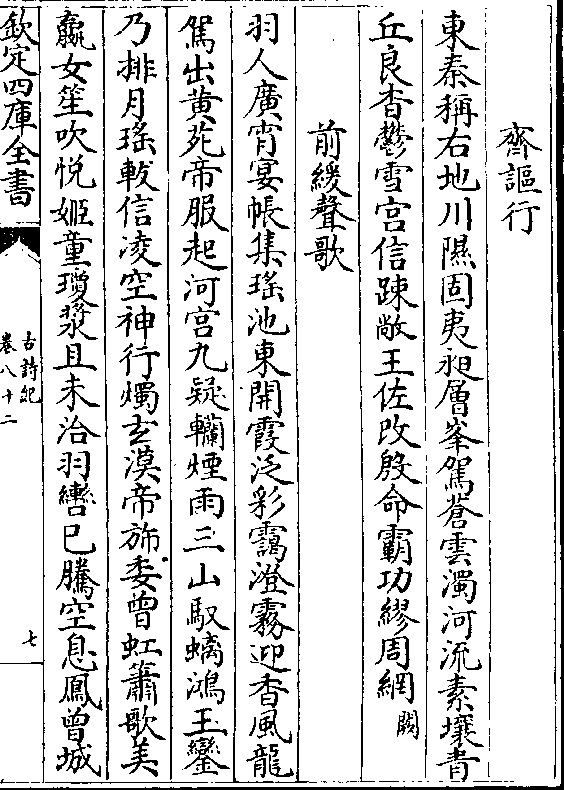 齊謳行
東秦稱右地川隰固夷昶層峯駕蒼雲濁河流素壤青
丘良杳鬱雪宮信踈敞王佐改殷命霸功繆周網闕
前緩聲歌
羽人廣宵宴帳集瑤池東開霞泛彩靄澄霧迎香風龍
駕出黄苑帝服起河宮九疑轥煙雨三山馭螭鴻玉鑾
乃排月瑤軷信凌空神行燭玄漠帝斾委曾虹簫歌美
嬴女笙吹悦姬童瓊漿且未洽羽轡已騰空息鳳曾城
欽定四庫全書
古詩紀
卷八十二
七